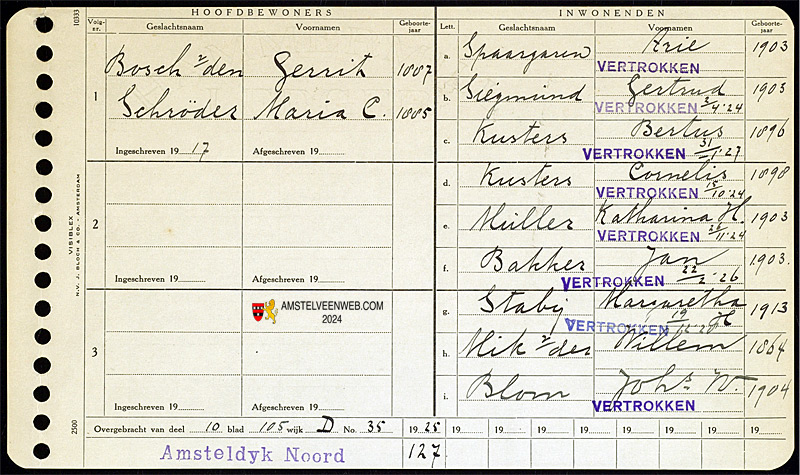 HOOFDBEWONERS
Volg-nr. Geslachtsnaam Voornamen Geboorte-jaar
1
Bosch v/den Gerrit 1887
Schröder Maria C. 1885
Ingeschreven 1917 Afgeschreven 19
2
Ingeschreven 19 Afgeschreven 19
3
Ingeschreven 19 Afgeschreven 19
INWONENDEN
Lett. Geslachtsnaam Voornamen Geboorte-jaar
a. Spaargaren Arie 1903
VERTROKKEN
b. Siegmund Gertrud 1903
VERTROKKEN 2/4 '24
c. Kusters Bertus 1896
VERTROKKEN 31/1 '27
d. Kusters Cornelis 1898
VERTROKKEN 15/10 '24
e. Müller Katharina H. 1903
VERTROKKEN 26/11 '24
f. Bakker Jan 1903.
VERTROKKEN 22/2 '26
g. Stabij Margaretha H 1913
VERTROKKEN 19/12
h. Mik v/der Willem 1864
i. Blom Johs W. 1904
VERTROKKEN
Overgebracht van deel 10 blad 105 wijk D No. 35 1925 19 19 19 19 19 19 19 19
Amsteldyk Noord 127.
10333
VISIBLEX
N.V. J. BLOCH & CO. AMSTERDAM
2500
AMSTELVEENWEB.COM
2024